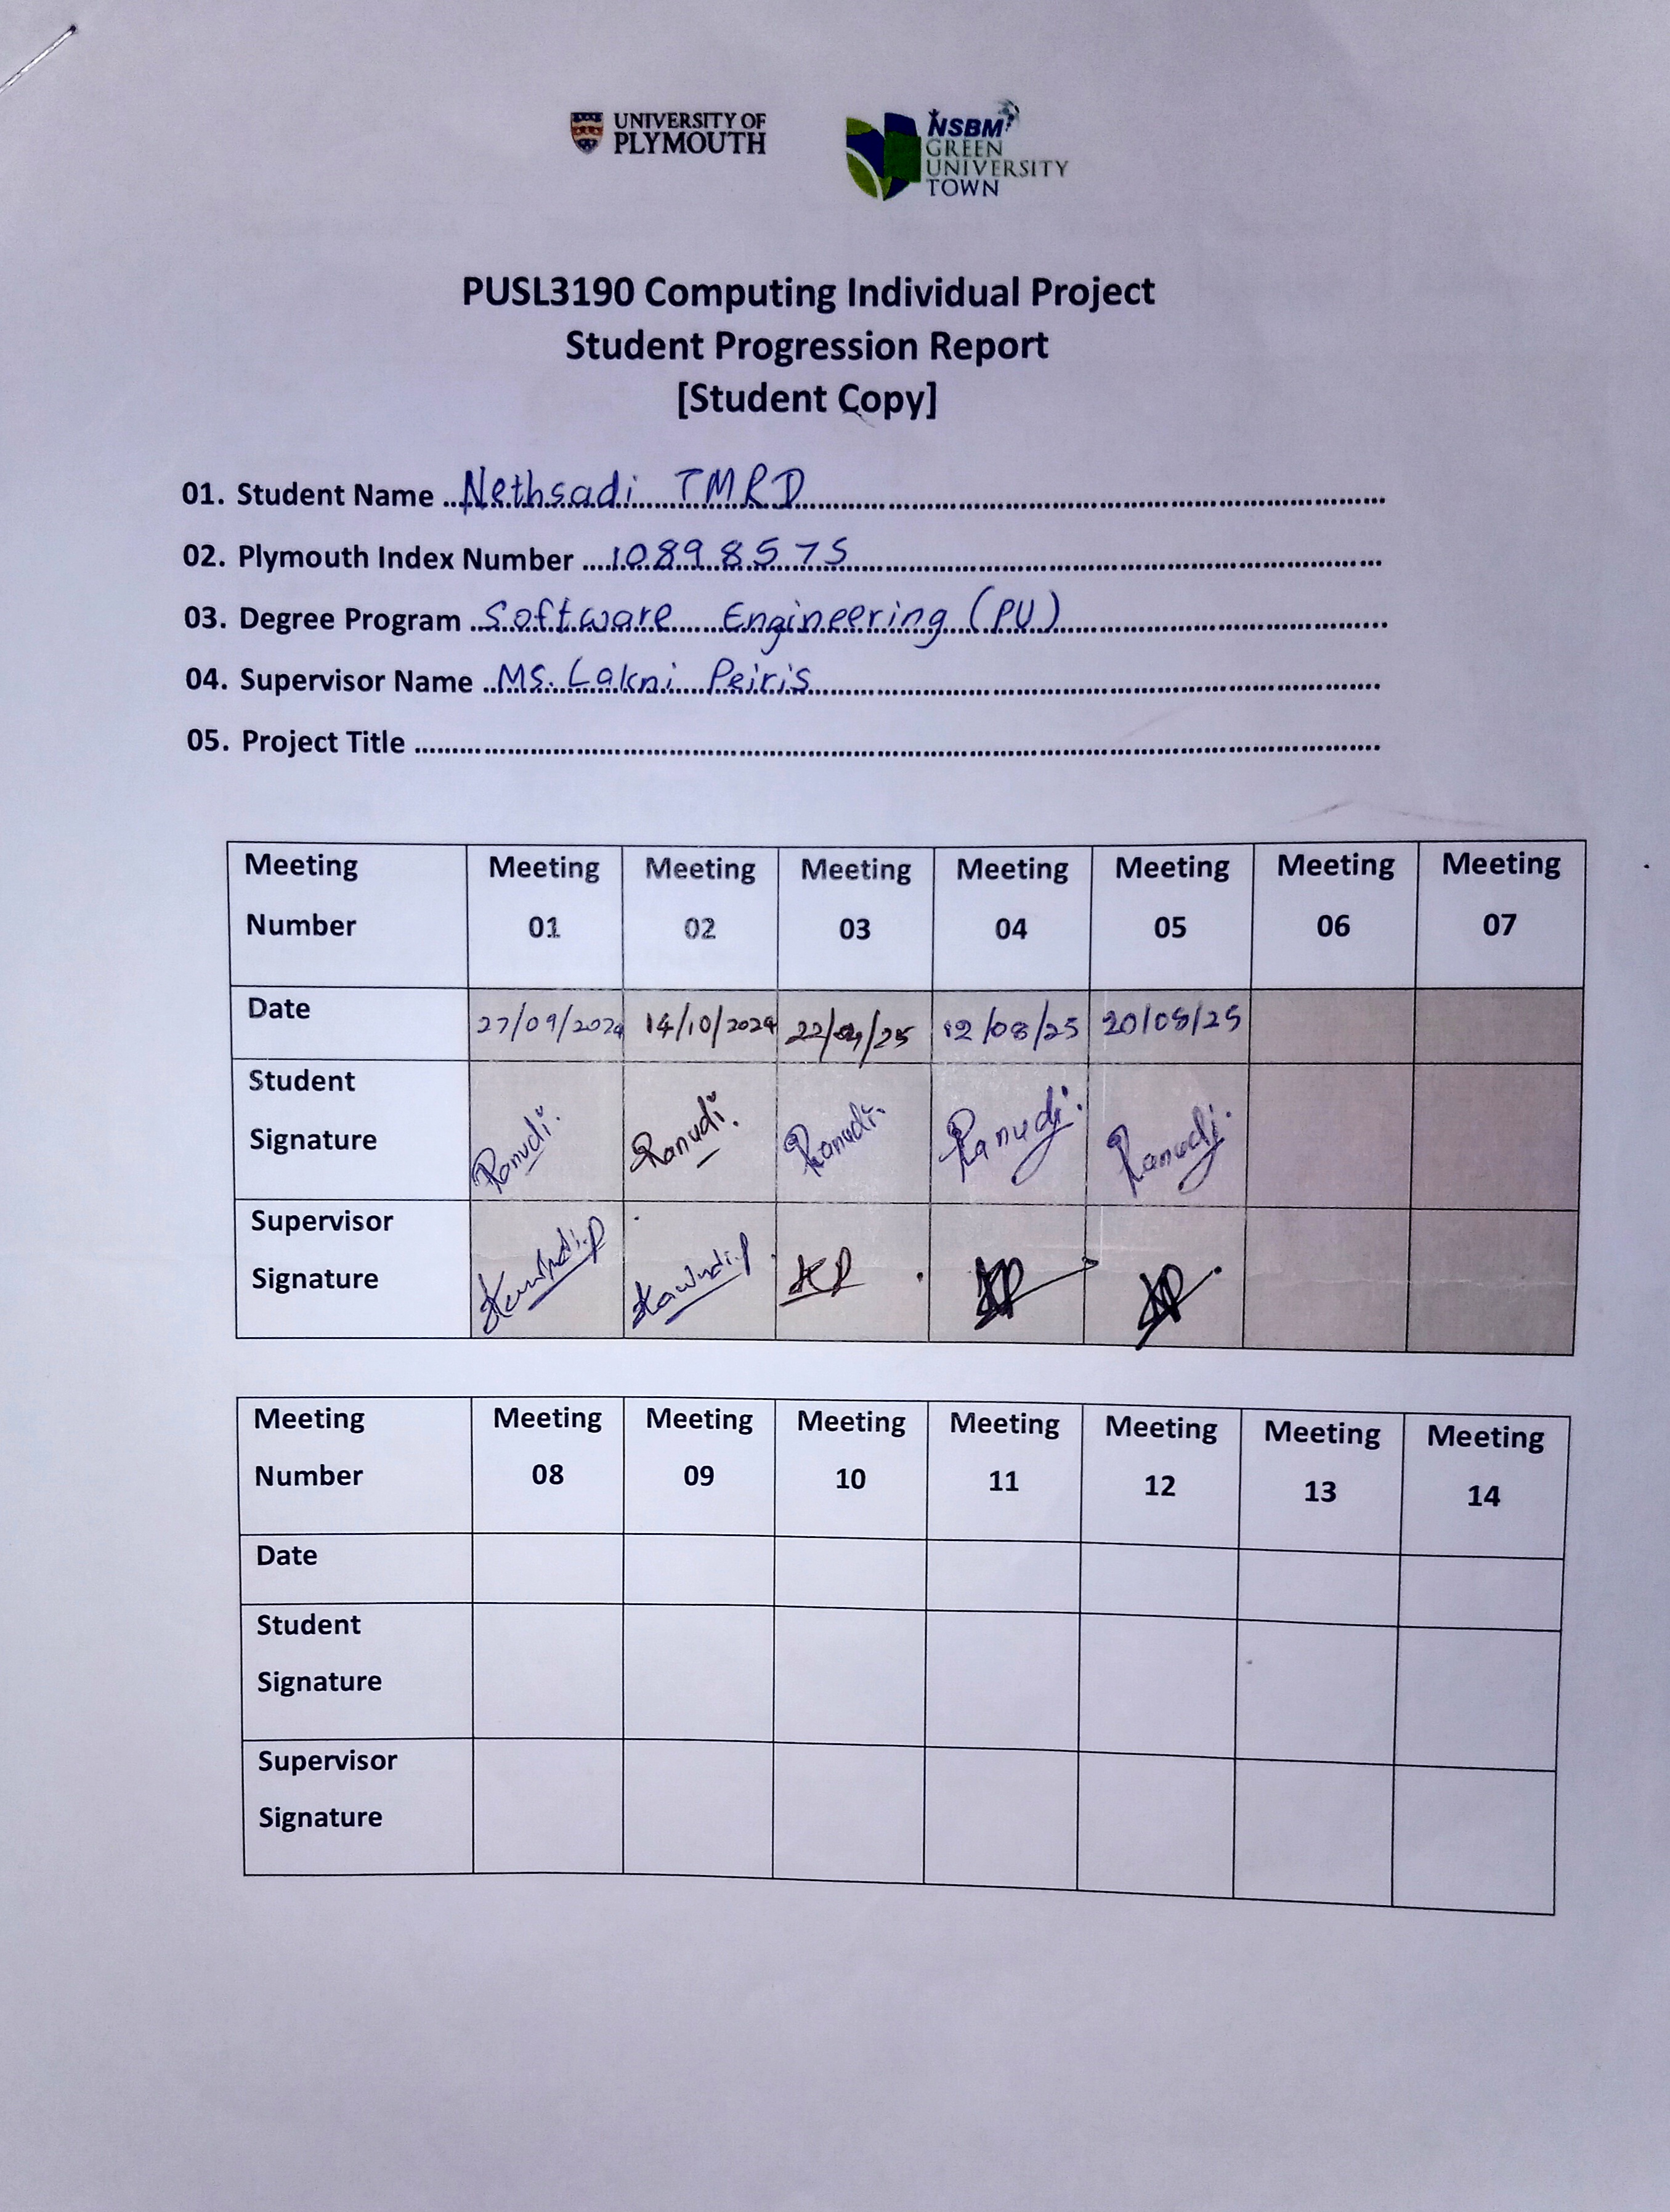 UNIVERSITY OF
PLYMOUTH
NSBM
GREEN
UNIVERSITY
TOWN
PUSL3190 Computing Individual Project
Student Progression Report
[Student Copy]
01. Student Name Nethsadi TMRD
02. Plymouth Index Number 10898575
03. Degree Program Software Engineering (PU)
04. Supervisor Name Ms. Lakni Peiris
05. Project Title
Meeting Number Meeting 01 Meeting 02 Meeting 03 Meeting 04 Meeting 05 Meeting 06 Meeting 07
Date 27/09/2024 14/10/2024 22/04/25 12/08/25 20/08/25
Student Signature Ranudi. Ranudi. Ranudi. Ranudi. Ranudi.
Supervisor Signature
Meeting Number Meeting 08 Meeting 09 Meeting 10 Meeting 11 Meeting 12 Meeting 13 Meeting 14
Date
Student Signature
Supervisor Signature